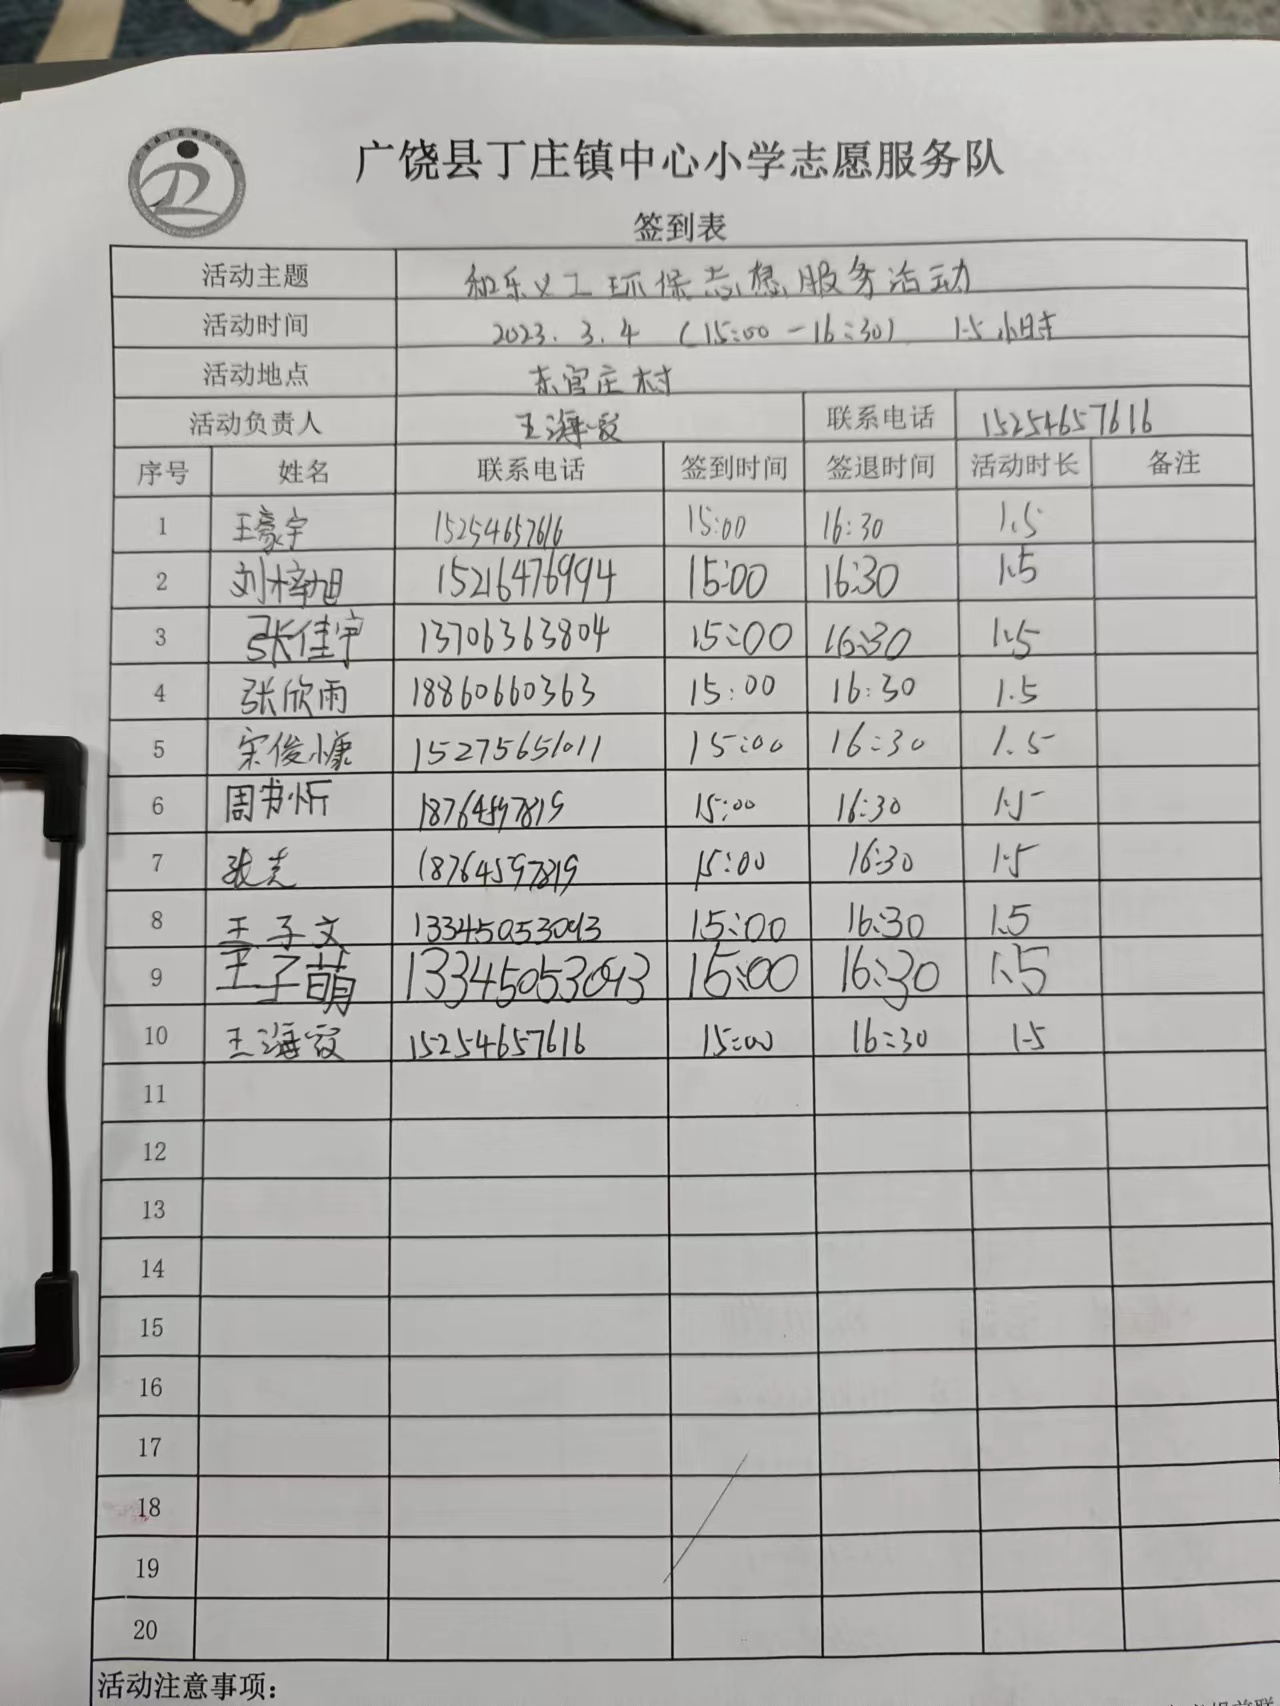 广饶县丁庄镇中心小学志愿服务队
签到表
活动主题 和乐义工环保志愿服务活动
活动时间 2023.3.4 (15:00-16:30) 1.5小时
活动地点 东官庄村
活动负责人 王海霞 联系电话 15254657616
序号 姓名 联系电话 签到时间 签退时间 活动时长 备注
1 王豪宇 15254657616 15:00 16:30 1.5
2 刘梓旭 15216476994 15:00 16:30 1.5
3 张佳宇 13706363804 15:00 16:30 1.5
4 张欣雨 18860660363 15:00 16:30 1.5
5 宋俊慷 15275651011 15:00 16:30 1.5
6 周书忻 18764597819 15:00 16:30 1.5
7 18764597819 15:00 16:30 1.5
8 王子文 13345053093 15:00 16:30 1.5
9 王子萌 13345053093 15:00 16:30 1.5
10 王海霞 15254657616 15:00 16:30 1.5
11
12
13
14
15
16
17
18
19
20
活动注意事项：